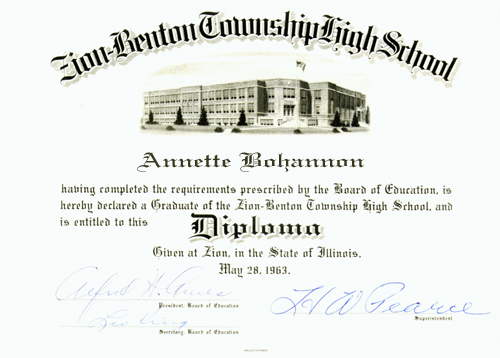 Zion-Benton Township High School
Annette Bohannon
having completed the requirements prescribed by the Board of Education, is
hereby declared a Graduate of the Zion-Benton Township High School, and
is entitled to this Diploma
Given at Zion, in the State of Illinois,
May 28, 1963.
President, Board of Education
H W Pearce
Superintendent
Secretary, Board of Education